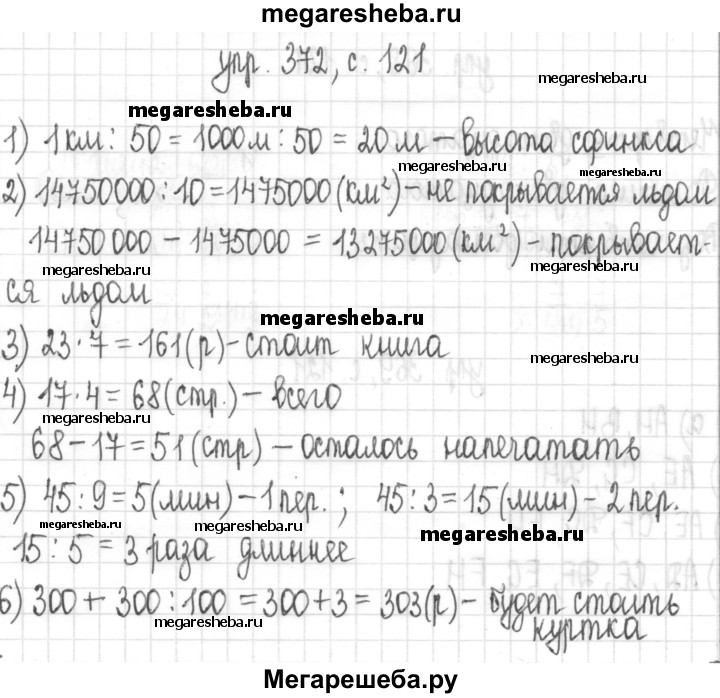 megaresheba.ru
упр. 372, с. 121
megaresheba.ru
megaresheba.ru
1) 1 км : 50 = 1000 м : 50 = 20 м – высота сфинкса
megaresheba.ru
megaresheba.ru
2) 14750000 : 10 = 1475000 (км²) – не покрывается льдом
megaresheba.ru
14750 000 – 1475000 = 13275000 (км²) – покрывает-
megaresheba.ru
megaresheba.ru
ся льдом
megaresheba.ru
3) 23 · 7 = 161 (р) – стоит книга
megaresheba.ru
4) 17 · 4 = 68 (стр.) – всего
megaresheba.ru
68 – 17 = 51 (стр) – осталось напечатать
5) 45 : 9 = 5 (мин) – 1 пер. ; 45 : 3 = 15 (мин) – 2 пер.
megaresheba.ru
megaresheba.ru
megaresheba.ru
15 : 5 = 3 раза длиннее
6) 300 + 300 : 100 = 300 + 3 = 303 (р) – будет стоить
megaresheba.ru
megaresheba.ru
куртка
Мегарешеба.ру